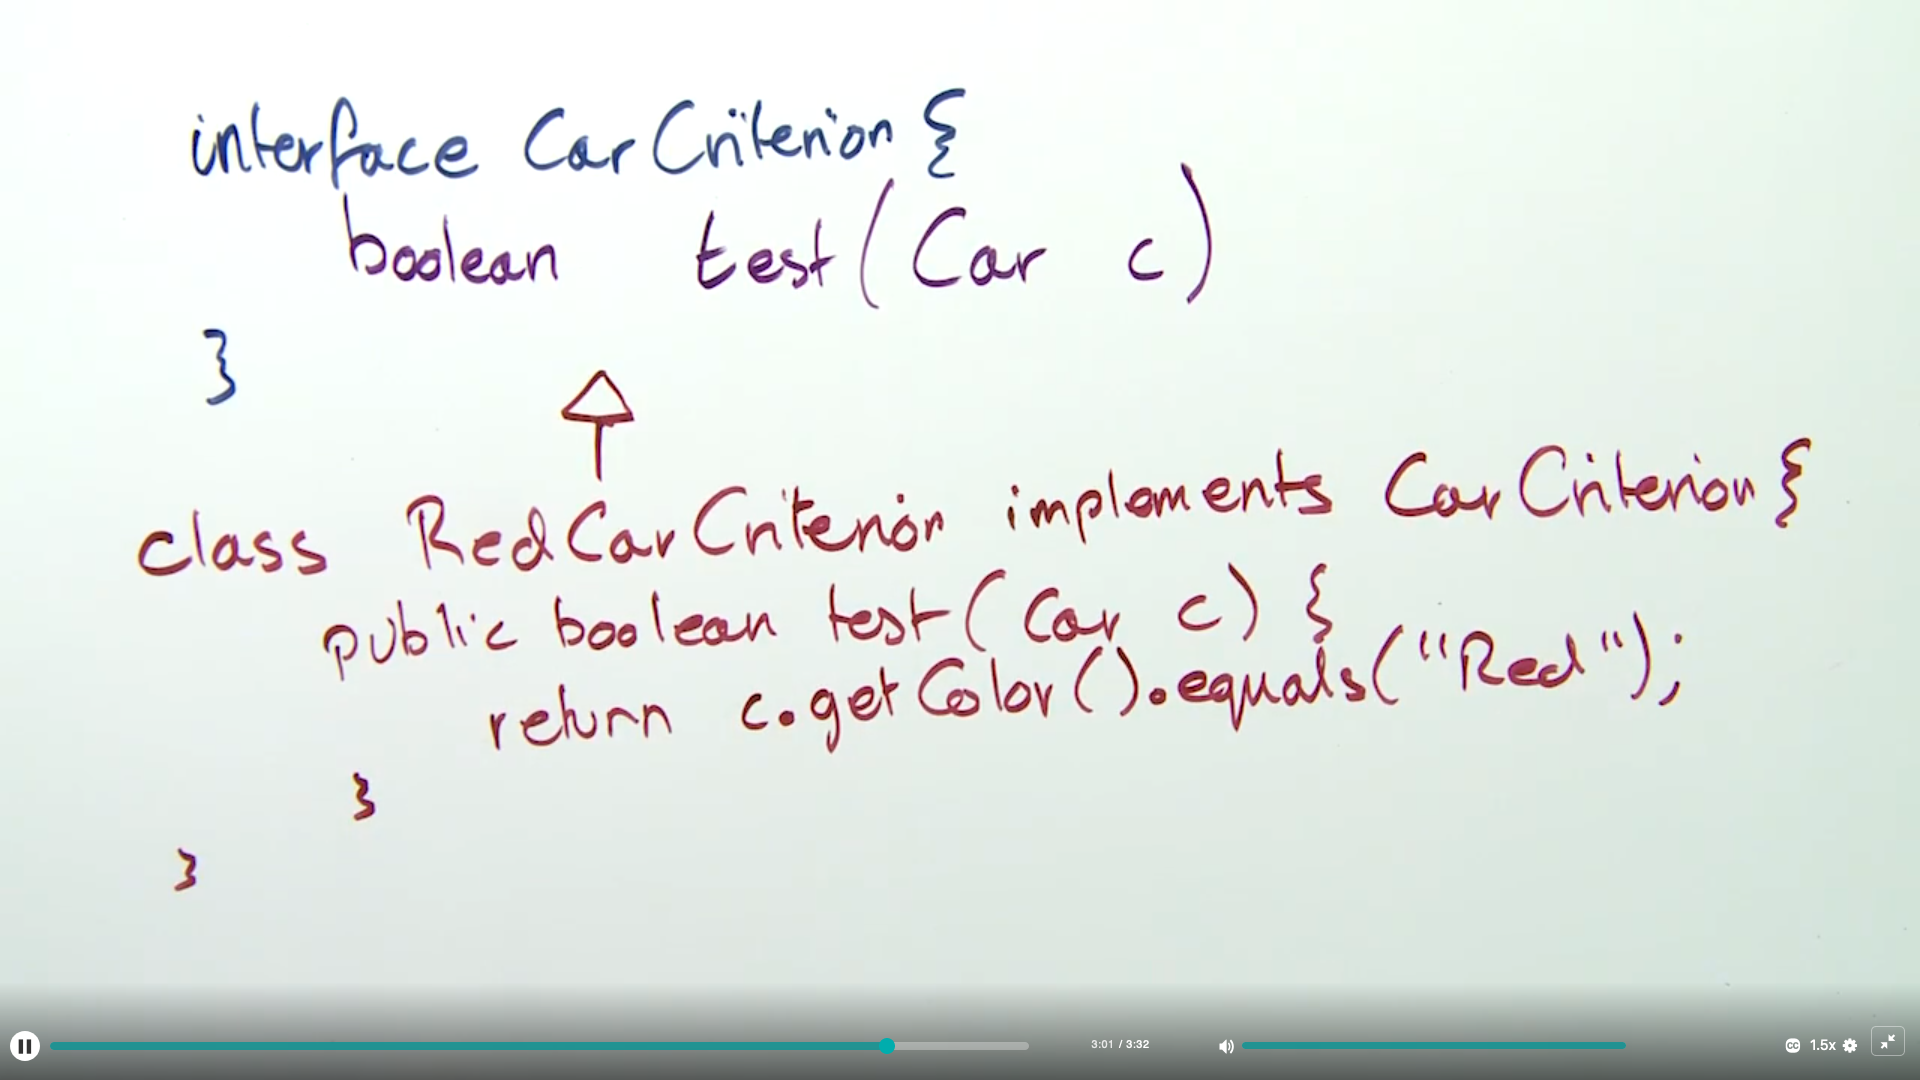 interface CarCriterion {
boolean test(Car c)
}
class RedCarCriterion implements CarCriterion {
public boolean test(Car c) {
return c.getColor().equals("Red");
}
}
3:01 / 3:32
CC 1.5x